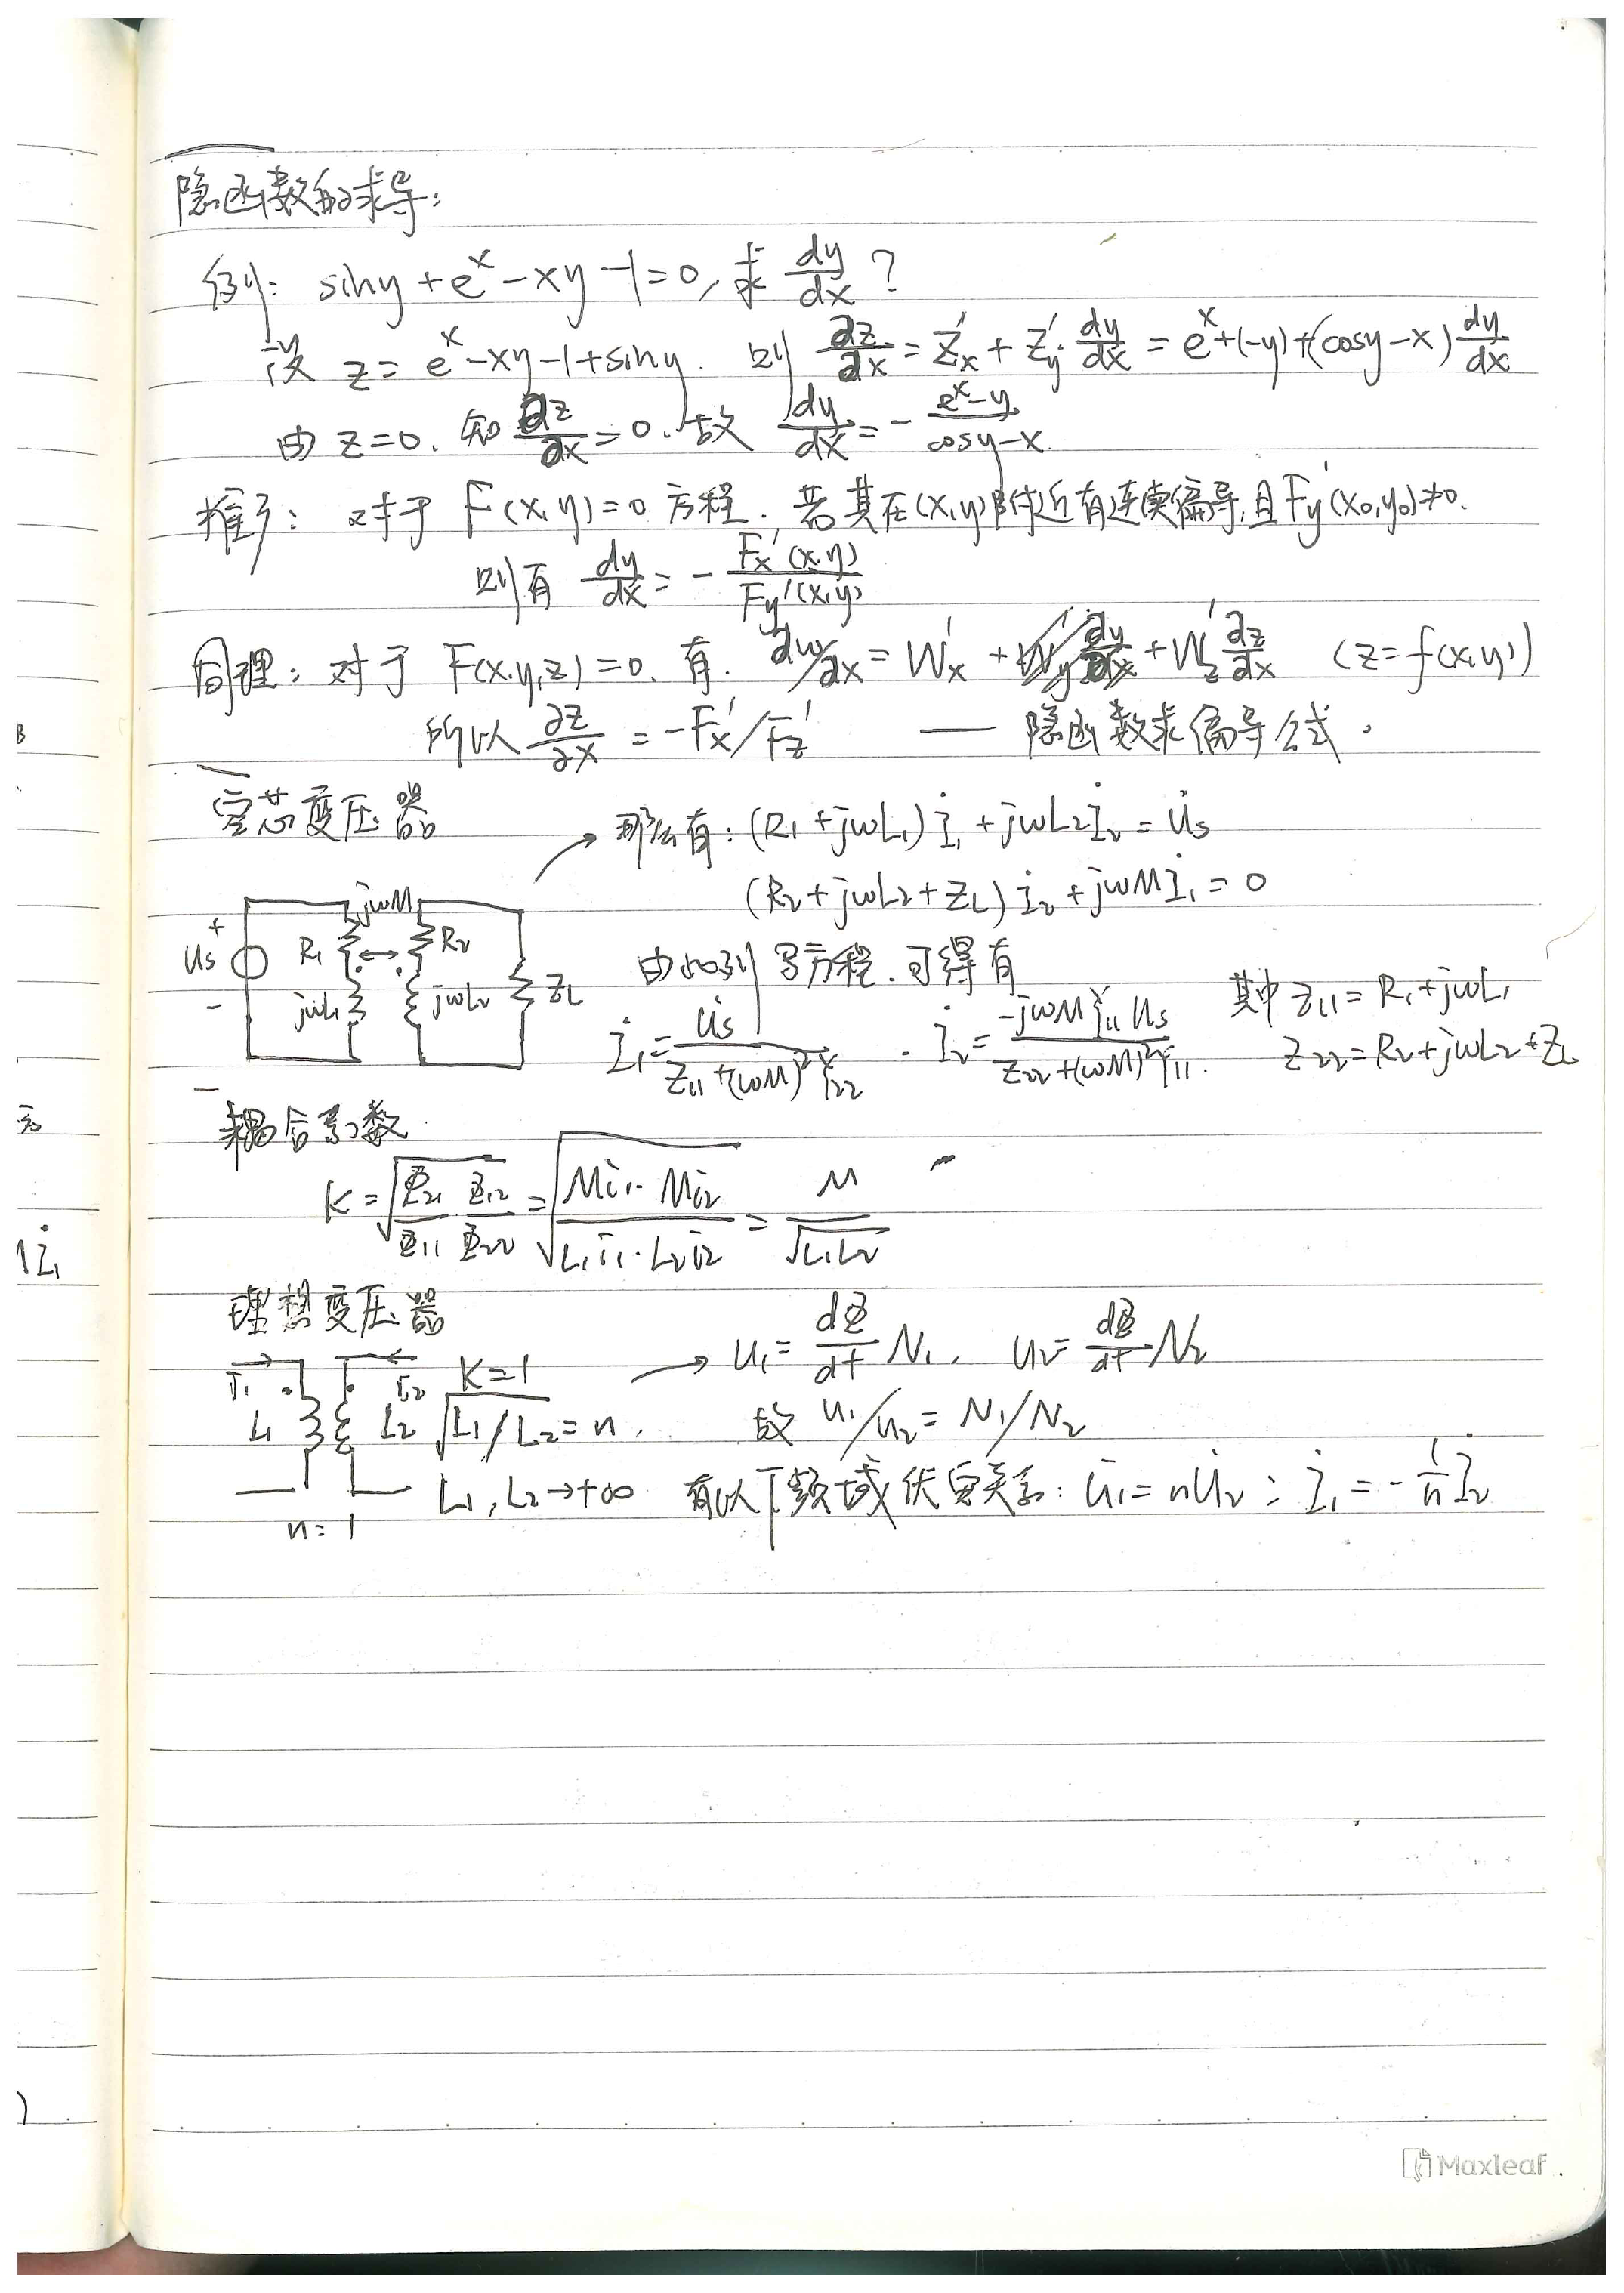 隐函数的求导：
例：siny + e^x - xy - 1 = 0，求 dy/dx ？
设 z = e^x - xy - 1 + siny. 则 ∂z/∂x = z'x + z'y · dy/dx = e^x + (-y) + (cosy - x) dy/dx
由 z = 0. 知 ∂z/∂x = 0. 故 dy/dx = - (e^x - y)/(cosy - x).
推广：对于 F(x,y) = 0 方程. 若其在(x,y)附近有连续偏导,且 Fy'(x0,y0) ≠ 0.
则有 dy/dx = - Fx'(x,y)/Fy'(x,y)
同理：对于 F(x,y,z) = 0. 有. ∂w/∂x = W'x + W'z ∂z/∂x (z = f(x,y))
所以 ∂z/∂x = -F'x/F'z —— 隐函数求偏导公式.
空芯变压器
→ 那么有：(R1 + jωL1) İ1 + jωL2 İ2 = U̇s
(R2 + jωL2 + ZL) İ2 + jωM İ1 = 0
jωM
+ Us - R1 R2 jωL1 jωL2 ZL
由此列写方程. 可得有
İ1 = U̇s/(Z11 + (ωM)²Y22) . İ2 = -jωM Y11 U̇s/(Z22 + (ωM)²Y11). 其中 Z11 = R1 + jωL1
Z22 = R2 + jωL2 + ZL
耦合系数
K = √(Φ21/Φ11 · Φ12/Φ22) = √(Mi1 · Mi2/(L1i1 · L2i2)) = M/√(L1L2)
理想变压器
→ U1 = dΦ/dt N1. U2 = dΦ/dt N2
I1 I2 K = 1
L1 L2 √(L1/L2) = n. 故 U1/U2 = N1/N2
L1, L2 → +∞ 有以下频域伏安关系：U̇1 = nU̇2 ; İ1 = - 1/n İ2
n : 1
B
İ1
)
Maxleaf